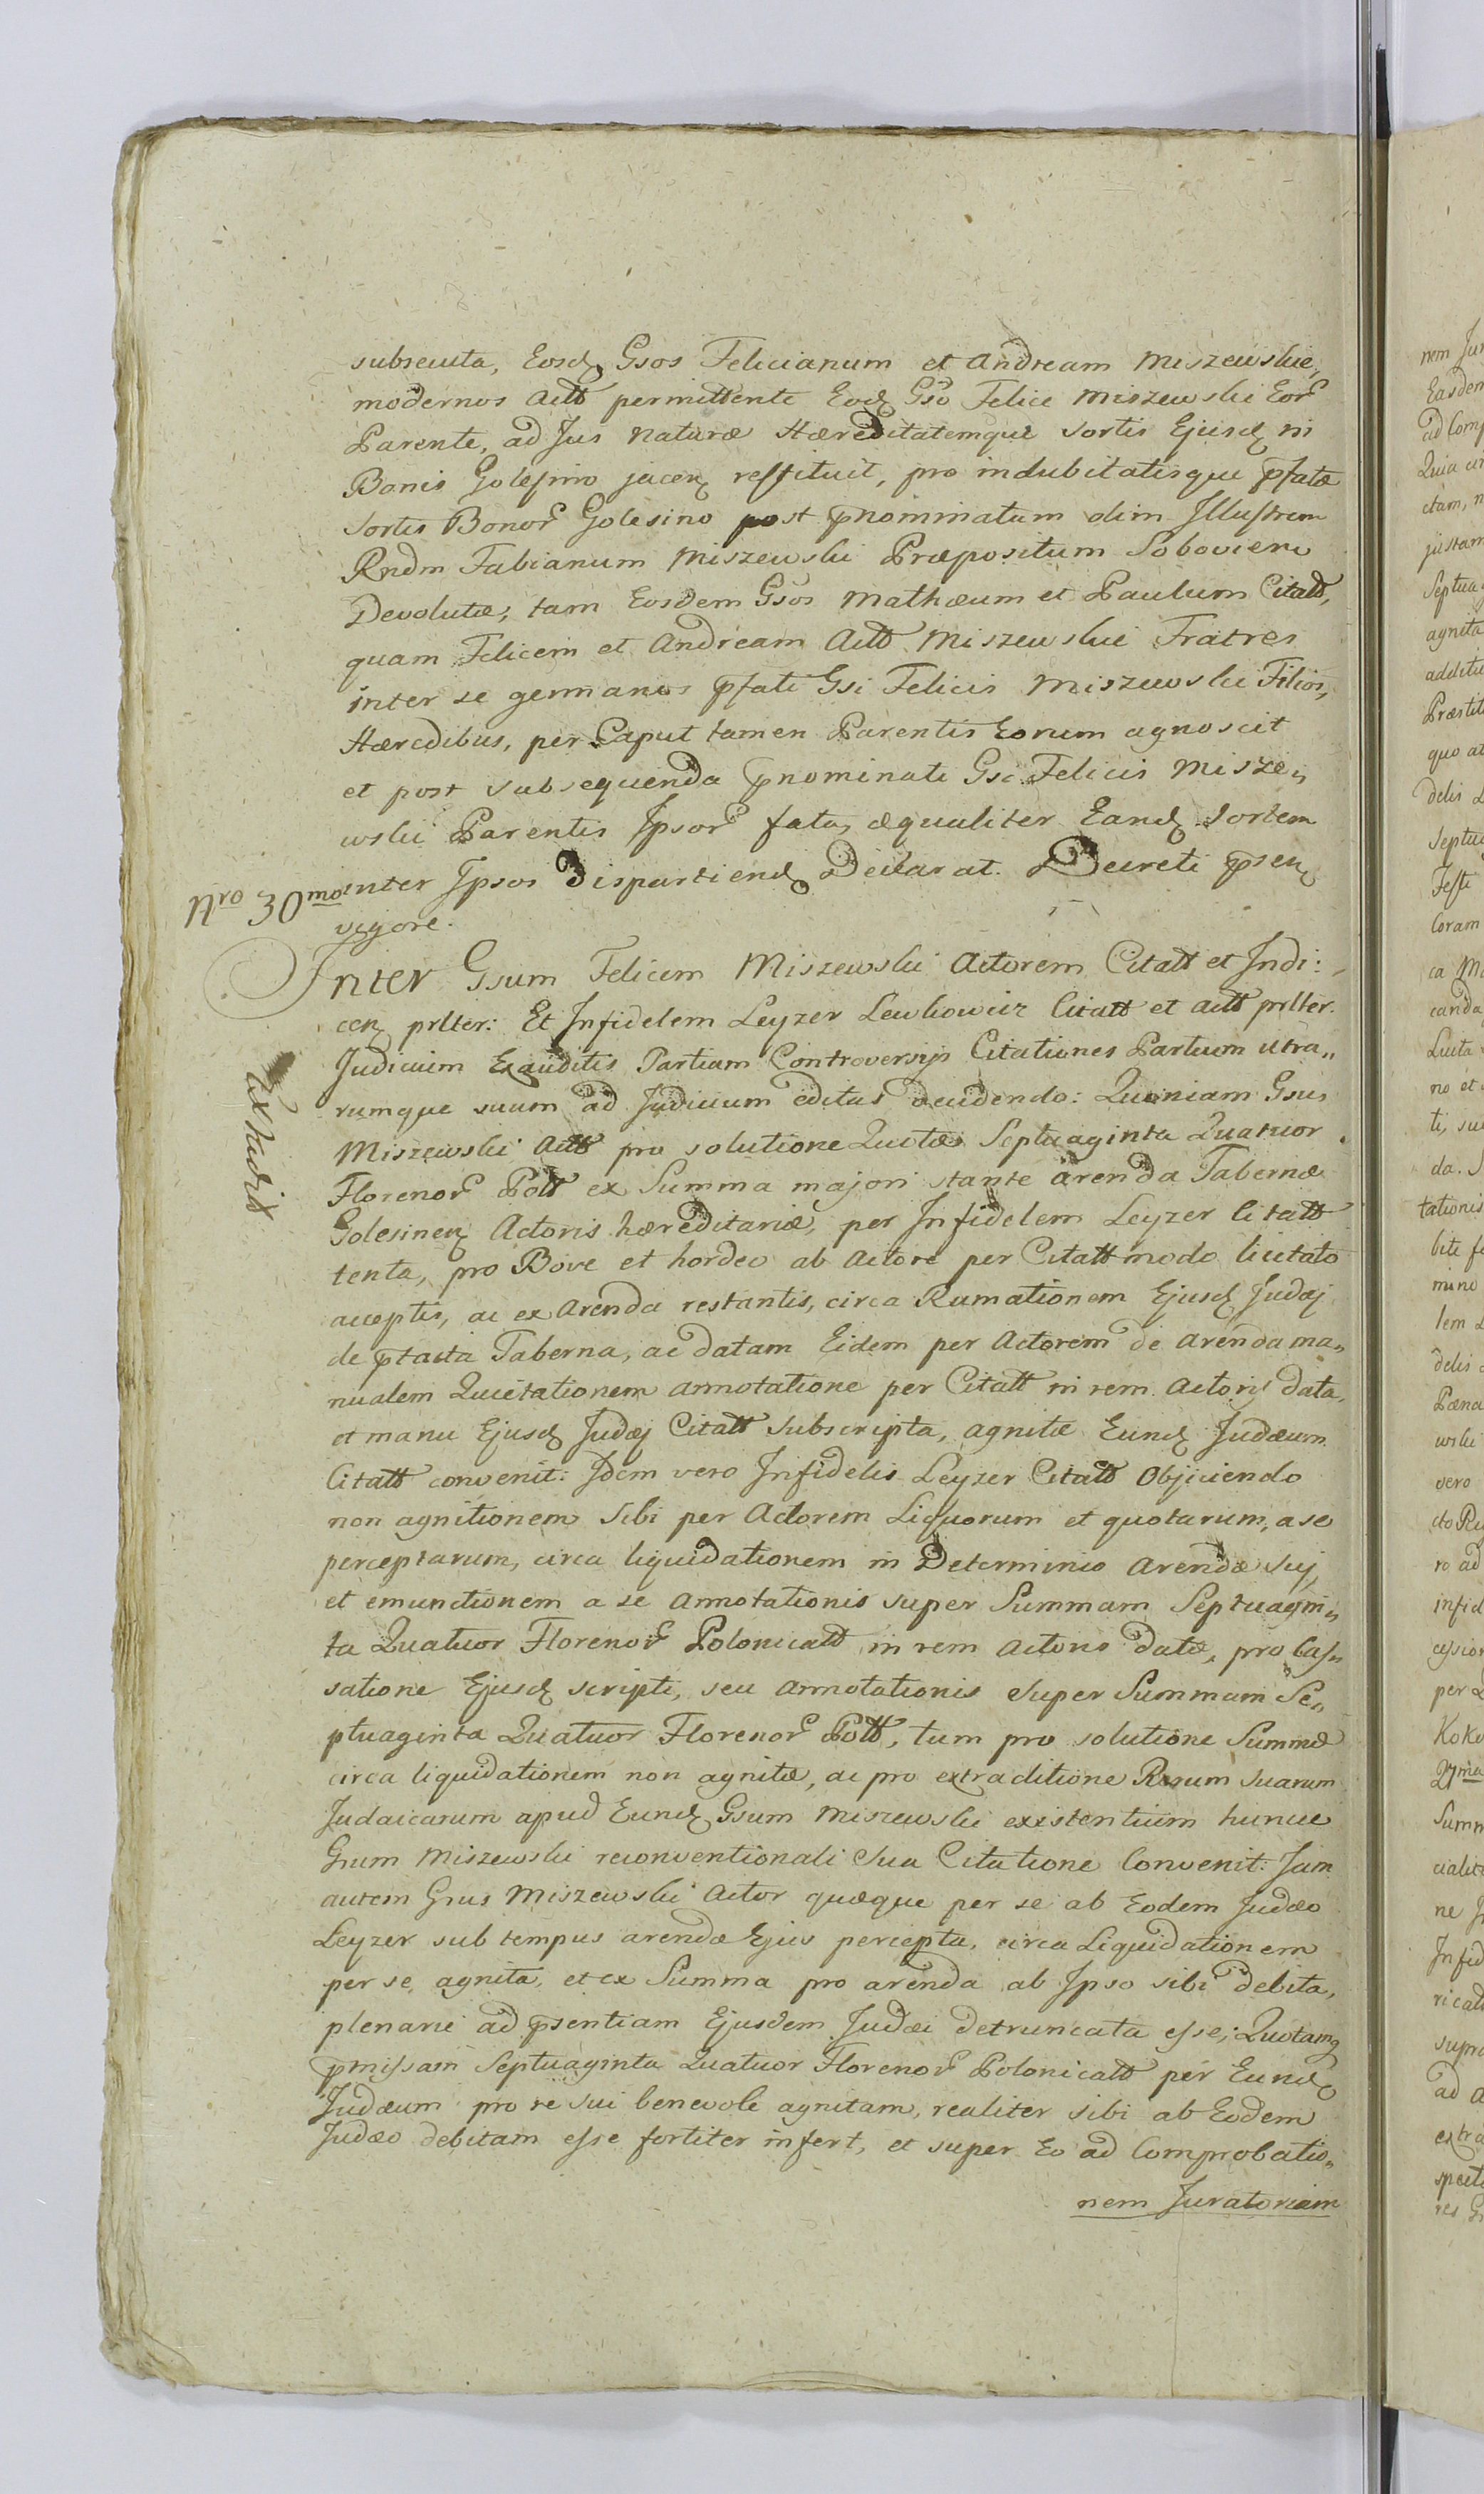 subsecuta, Eosd Gsos Felicianum et Andream Miszewskie,
modernos Actt permittente Eod Gso Felice Miszewski Eor
Parente, ad Jus naturæ Hæreditatemque Sortis Ejusd in
Bonis Golesino jacen restituit, pro indubitatisque pfatæ
Sortis Bonor Golesino post pnominatum olim Illustrem
Rndm Fabianum Miszewski Præpositum Sobovien
Devolutæ, tam Eosdem Gsos Mathæum et Paulum Citatt,
quam Felicem et Andream Actt Miszewskie Fratres
inter se germanos pfati Gsi Felicis Miszewski Filios,
Hæredibus, per Caput tamen Parentis Eorum agnoscit
et post subsequenda pnominati Gsi Felicis Misze„
wski Parentis Ipsor fata, æqualiter Eand Sortem
Nro 30mo
inter Ipsos dispartiend Declarat. Decreti psen
vigore.
Inter Gsum Felicem Miszewski Actorem Citatt et Indi:
cen prlter: Et Infidelem Leyzer Lewkowicz Citatt et actt prlter.
Exhudit
Judicium Exauditis Partium Controversijs Citationes Partium utra„
rumque suum ad Judicium editas decidendo: Quoniam Gsus
Miszewski Actt pro solutione Quotæ Septuaginta Quatuor
Florenor Poltt ex Summa majori stante arenda Tabernæ
Golesinen Actoris hæreditariæ, per Infidelem Leyzer Citatt
tenta, pro Bove et hordeo ab Actore per Citatt modo licitato
acceptis, ac ex Arenda restantis, circa Rumationem Ejusd Judæj
de ptacta Taberna, ac datam Eidem per Actorem de arenda ma„
nualem Quietationem annotatione per Citatt in rem Actoris data,
et manu Ejusd Judæj Citatt subscripta, agnitæ Eund Judæum
Citatt convenit: Idem vero Infidelis Leyzer Citatt Objiciendo
non agnitionem Sibi per Actorem Liquorum et quotarum, a se
perceptarum, circa liquidationem in Determinio Arendæ suj,
et emunctionem a se annotationis super Summam Septuagin„
ta Quatuor Florenor Polonicatt in rem Actoris datæ, pro Cas„
satione Ejusd scripti, seu annotationis super Summam Se„
ptuaginta Quatuor Florenor Poltt, tum pro solutione Summæ
circa liquidationem non agnitæ, ac pro extraditione Rerum suarum
Judaicarum apud Eund Gsum Miszewski existentium hunce
Gsum Miszewski reconventionali Sua Citatione Convenit: Jam
autem Gsus Miszewski Actor quæque per se ab Eodem Judæo
Leyzer sub tempus arendæ Ejus percepta, circa Liquidationem
per se agnita, et ex Summa pro arenda ab Ipso sibi debita,
plenarie ad psentiam Ejusdem Judæi detruncata esse; Quotamq
pmissam Septuaginta Quatuor Florenor Polonicatt per Eund
Judæum pro re sui benevole agnitam, realiter sibi ab Eodem
Judæo debitam esse fortiter infert, et super Eo ad Comprobatio„
nem Juratoriam